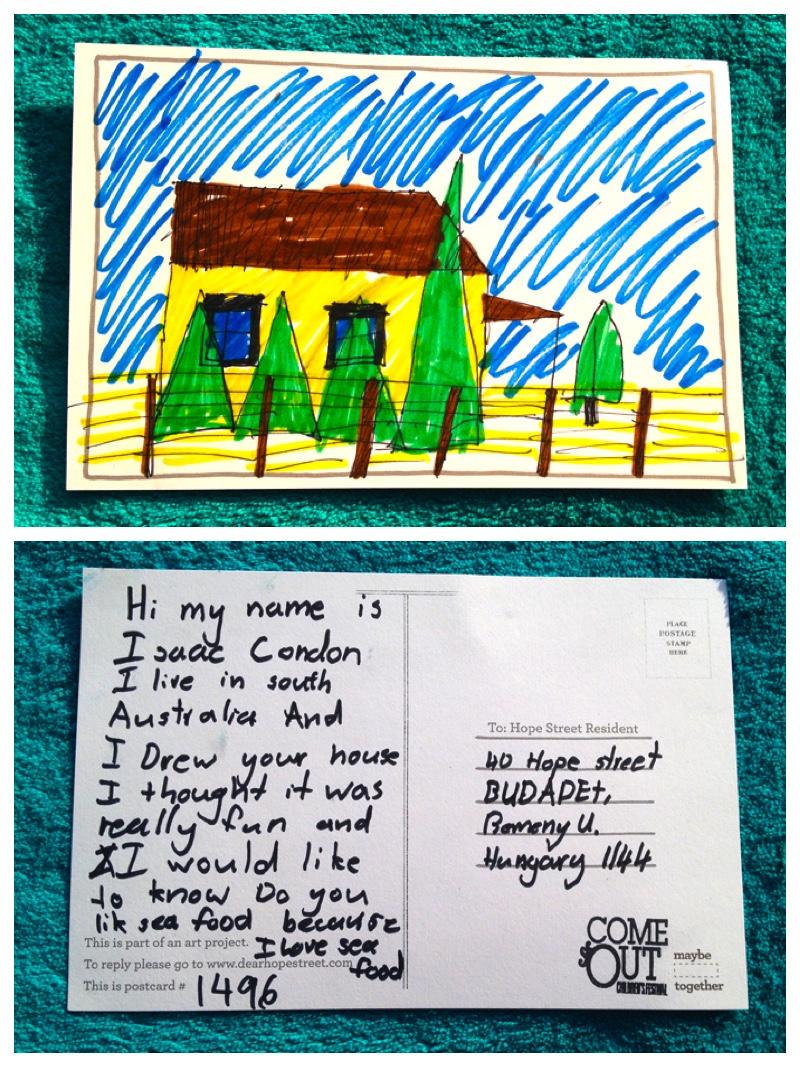 Hi my name is
Isaac Condon
I live in south
Australia And
I Drew your house
I thought it was
really fun and
I would like
to know Do you
lik sea food because
I love sea
food
This is part of an art project.
To reply please go to www.dearhopestreet.com
This is postcard # 1496
PLACE
POSTAGE
STAMP
HERE
To: Hope Street Resident
40 Hope street
BUDAPEt,
Remeny U.
Hungary 1144
COME
OUT
CHILDREN'S FESTIVAL
maybe
together